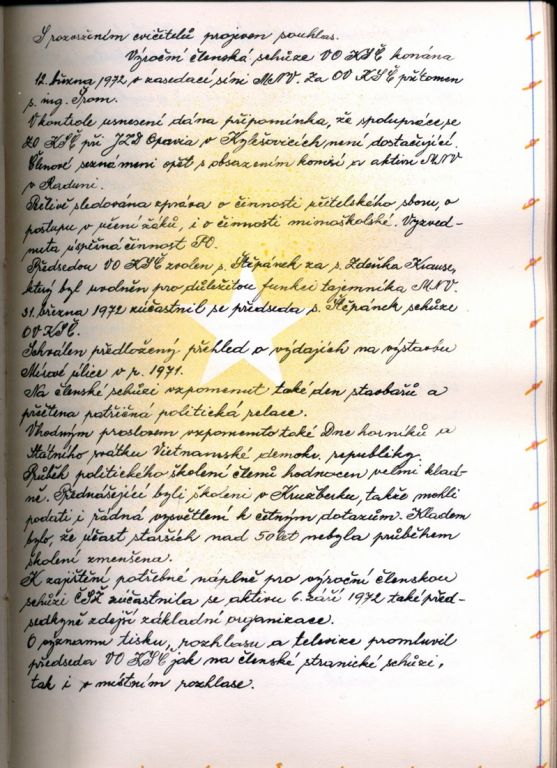 S rozvržením cvičitelů projeven souhlas.
Výroční členská schůze VO KSČ konána
12. března 1972 v zasedací síni MNV. Za OV KSČ přítomen
s. ing. Šrom.
V kontrole usnesení dána připomínka, že spolupráce se
ZO KSČ při JZD Opavia v Kylešovicích není dostačující.
Členové seznámeni opět s obsazením komisí a aktivů MNV
v Raduni.
Pečlivě sledována zpráva o činnosti učitelského sboru, o
postupu v učení žáků, i o činnosti mimoškolské. Vyzved-
nuta úspěšná činnost PO.
Předsedou VO KSČ zvolen s. Štěpánek za s. Zdeňka Krause,
který byl uvolněn pro důležitou funkci tajemníka MNV.
31. března 1972 zúčastnil se předseda s. Štěpánek schůze
OV KSČ.
Schválen předložený přehled o výdajích na výstavbu
Mírové ulice v r. 1971.
Na členské schůzi vzpomenut také den stavbařů a
přečtena patřičná politická relace.
Vhodným proslovem vzpomenuto také Dne horníků a
Státního svátku Vietnamské demokr. republiky.
Průběh politického školení členů hodnocen velmi klad-
ně. Přednášející byli školeni v Kružberku, takže mohli
podati i řádná vysvětlení k četným dotazům. Kladem
bylo, že účast starších nad 50 let nebyla průběhem
školení zmenšena.
K zajištění potřebné náplně pro výroční členskou
schůzi ČSŽ zúčastnila se aktivu 6. září 1972 také před-
sedkyně zdejší základní organizace.
O významu tisku, rozhlasu a televize promluvil
předseda VO KSČ jak na členské stranické schůzi,
tak i v místním rozhlase.